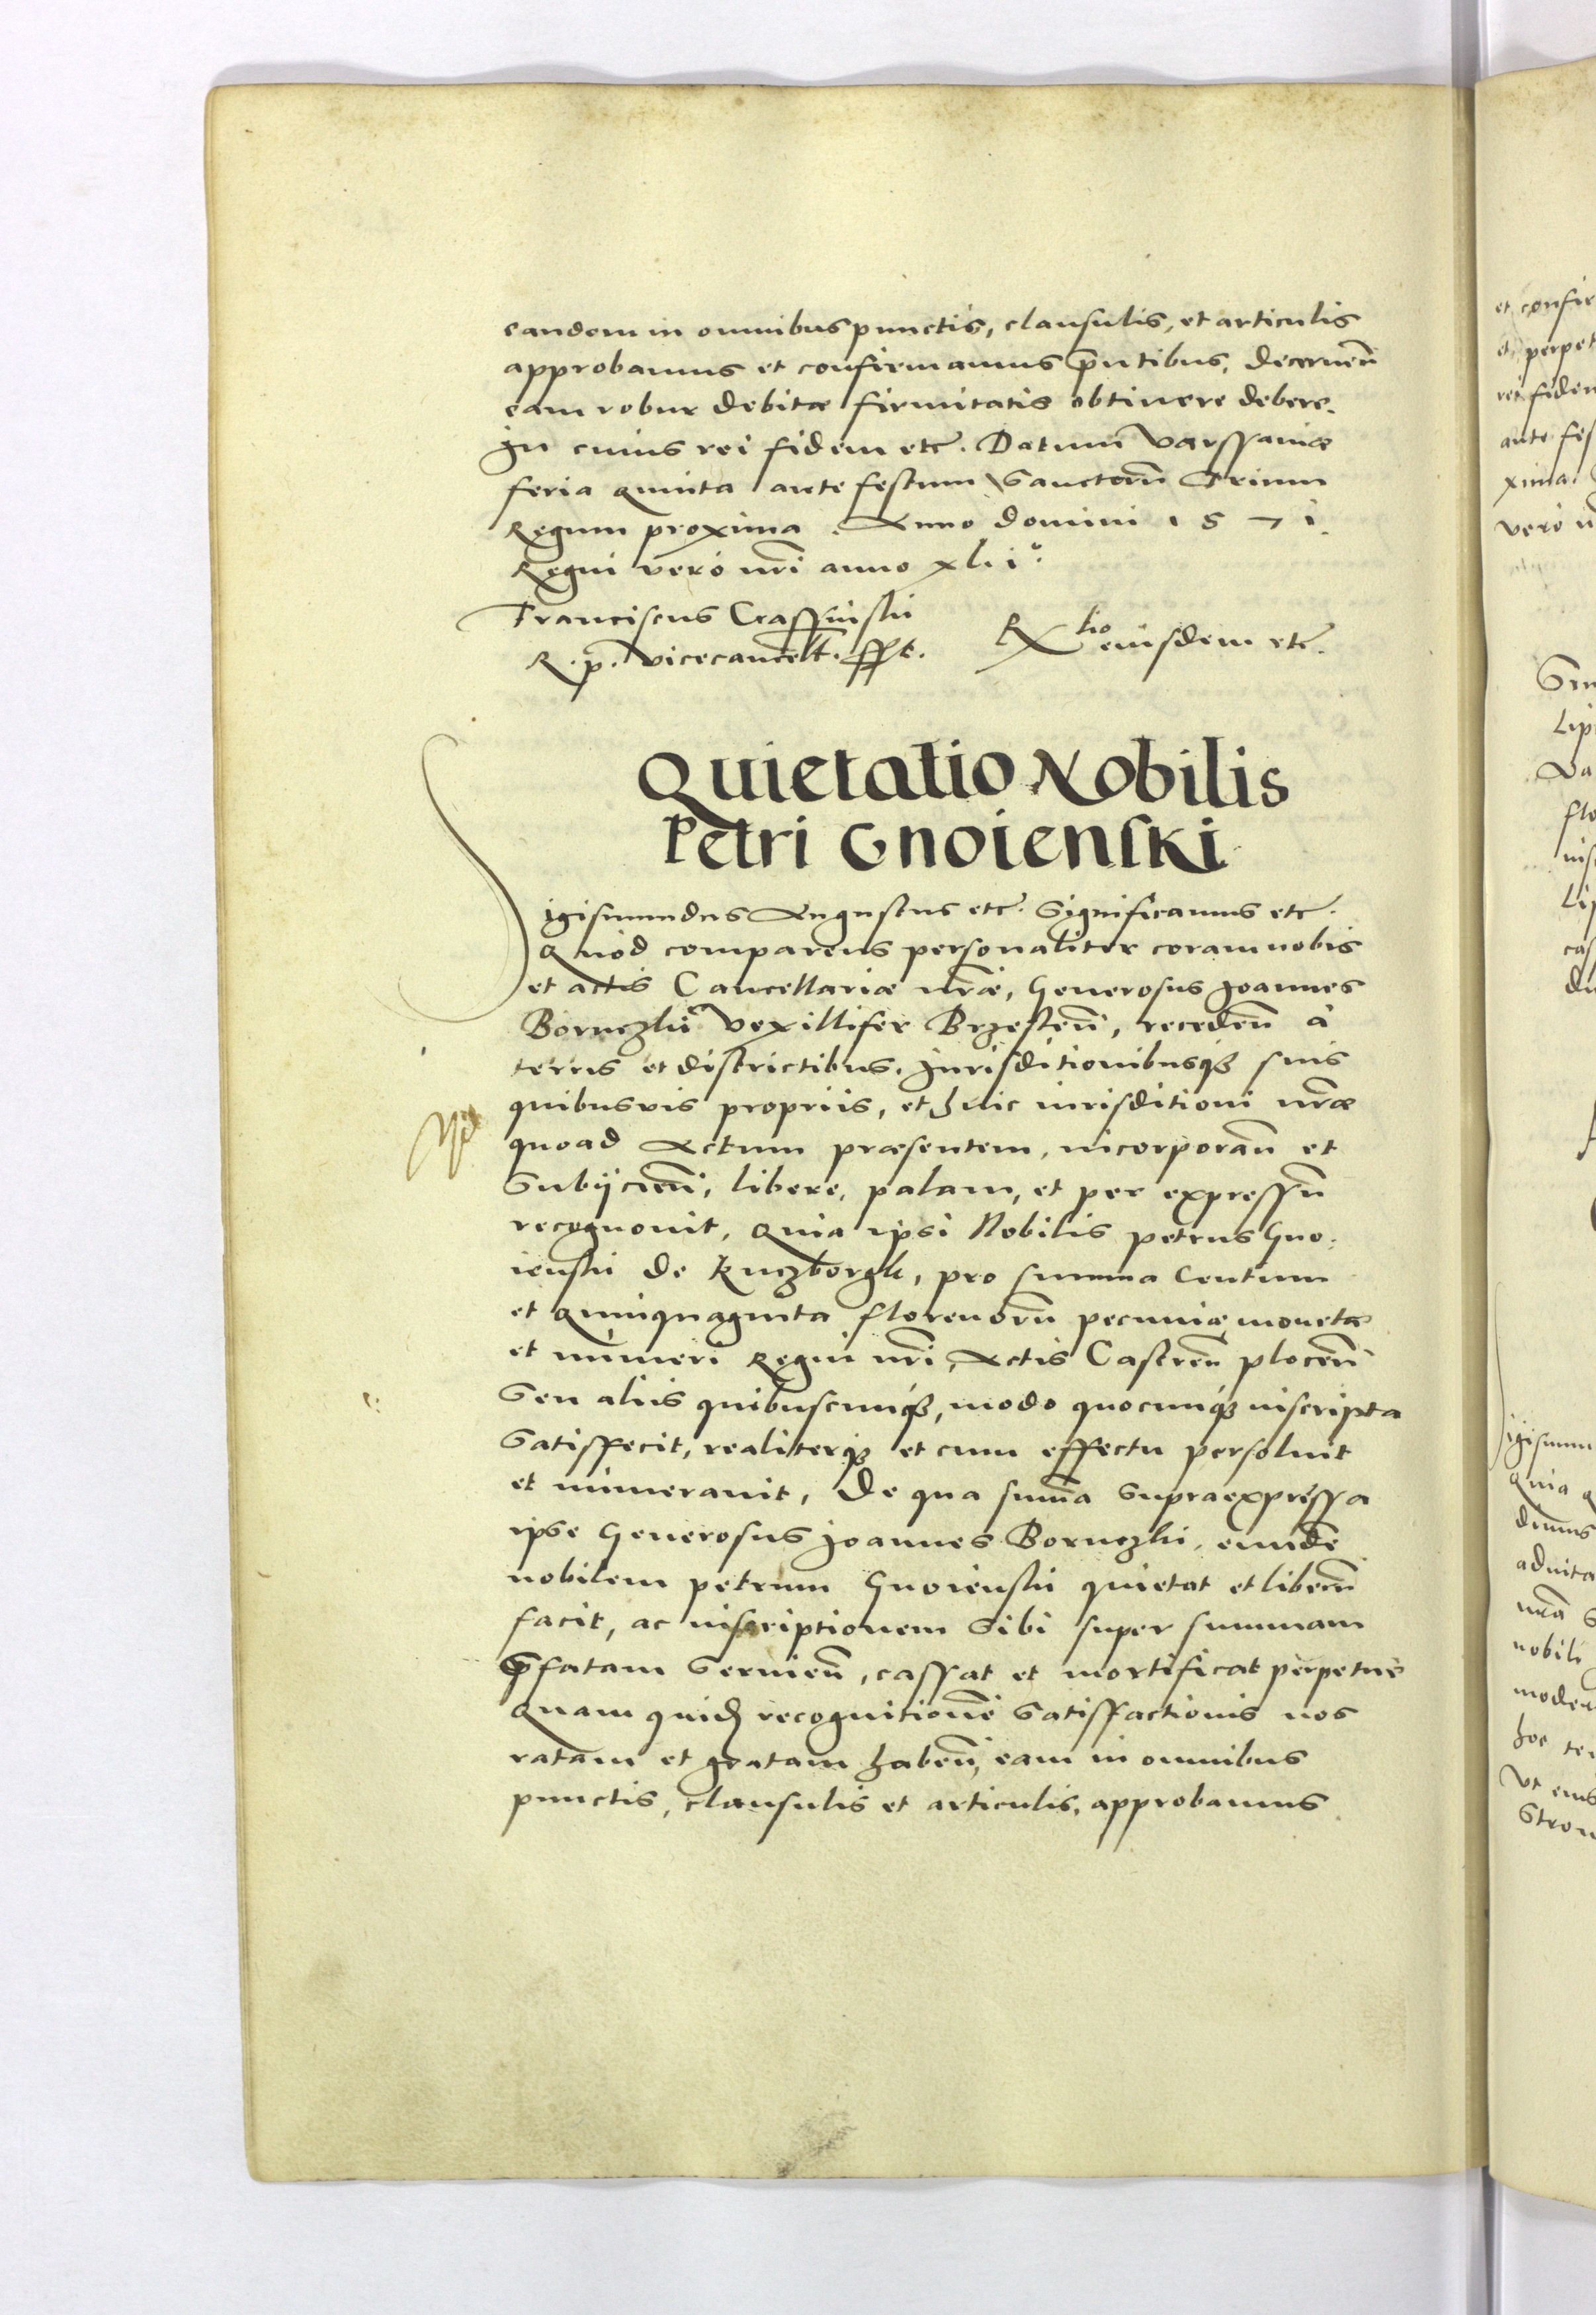 eandem in omnibus punctis, clausulis, et articulis
approbamus et confirmamus p̄ntibus, decernen̄
eam robur debitæ firmitatis obtinere debere.
In cuius rei fidem etc. Datum Varssaviæ
feria quinta ante festum Sanctorū Trium
Regum proxima. Anno domini 1571.
Regni vero nr̄i anno xli°.
Franciscus Crassinski
R. p. vicecancell. sspt.
Rtio eiusdem etc.
Quietatio Nobilis
Petri Gnoienski
Sigismundus Augustus etc. Significamus etc.
Quod comparens personaliter coram nobis
et actis Cancellariæ nr̄æ, Generosus Joannes
Bornczki Vexillifer Brzesten̄, receden̄ à
terris et districtibus, Jurisditionibusqȝ suis
quibusvis propriis, et huic iurisditioni nr̄æ
quoad Actum præsentem, incorporan̄ et
Subijcien̄, libere, palam, et per expressū
recognovit, Quia ipsi Nobilis petrus Gno-
ienski de Kuczborgk, pro summa Centum
et Quinquaginta florenorū pecuniæ monetæ
et numeri Regni nr̄i, Actis Castren̄ plocen̄
Seu aliis quibuscunqȝ, modo quocunqȝ inscripta
Satisfecit, realiterqȝ et cum effectu persolvit
et numeravit, De qua sum̄a Supraexpressa
ipse Generosus Joannes Bornczki, eundē
nobilem petrum Gnoienski quietat et liberū
facit, ac inscriptionem Sibi super summam
p̄fatam Servien̄, cassat et mortificat perpetuè
Quam quid̄ recognitionē Satisfactionis nos
ratam et gratam haben̄, eam in omnibus
punctis, clausulis et articulis, approbamus